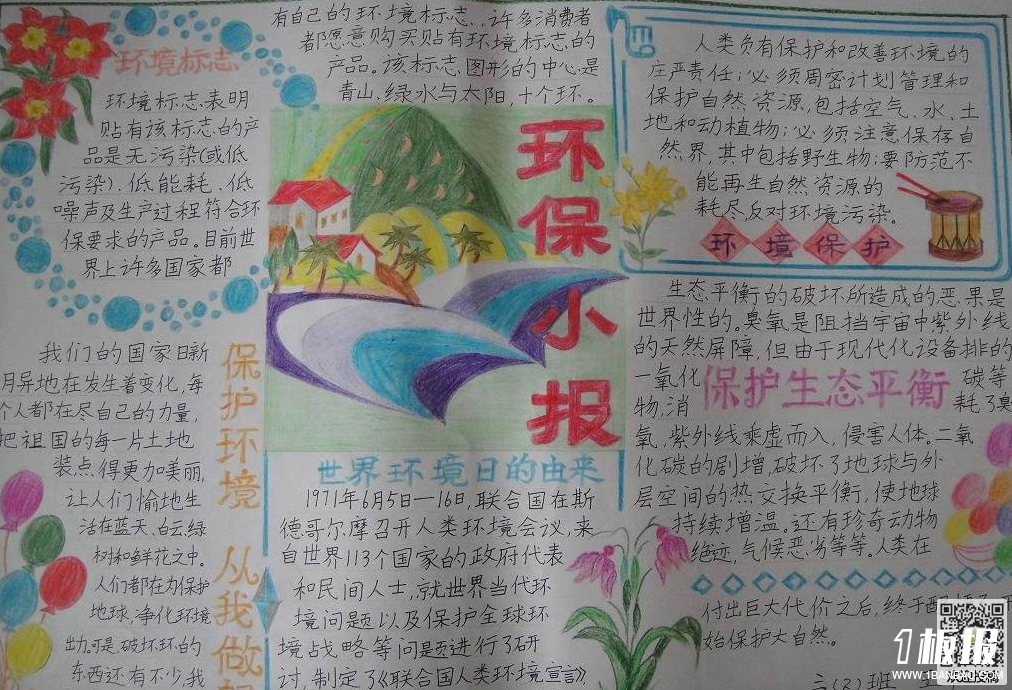 环境标志
环境标志表明
贴有该标志的产
品是无污染(或低
污染)、低能耗、低
噪声及生产过程符合环
保要求的产品。目前世
界上许多国家都
有自己的环境标志,许多消费者
都愿意购买贴有环境标志的
产品。该标志图形的中心是
青山、绿水与太阳,十个环。
环
保
小
报
人类负有保护和改善环境的
庄严责任;必须周密计划管理和
保护自然资源,包括空气、水、土
地和动植物;必须注意保存自
然界,其中包括野生物;要防范不
能再生自然资源的
耗尽反对环境污染。
环境保护
我们的国家日新
月异地在发生着变化,每
个人都在尽自己的力量,
把祖国的每一片土地
装点得更加美丽,
让人们愉地生
活在蓝天、白云、绿
树和鲜花之中。
人们都在为保护
地球,净化环境
出力。可是,破坏环的
东西还有不少,我
保护环境
从我做起
世界环境日的由来
1971年6月5日—16日,联合国在斯
德哥尔摩召开人类环境会议,来
自世界113个国家的政府代表
和民间人士,就世界当代环
境问题以及保护全球环
境战略等问题进行了研
讨,制定了《联合国人类环境宣言》
生态平衡的破坏所造成的恶果是
世界性的。臭氧是阻挡宇宙中紫外线
的天然屏障,但由于现代化设备排的
一氧化 碳等
保护生态平衡
物,消 耗了臭
氧,紫外线乘虚而入,侵害人体。二氧
化碳的剧增,破坏了地球与外
层空间的热交换平衡,使地球
持续增温。还有珍奇动物
绝迹,气候恶劣等等。人类在
付出巨大代价之后,终于
始保护大自然。
三(2)班
1板报
WWW.1BANBAO.COM